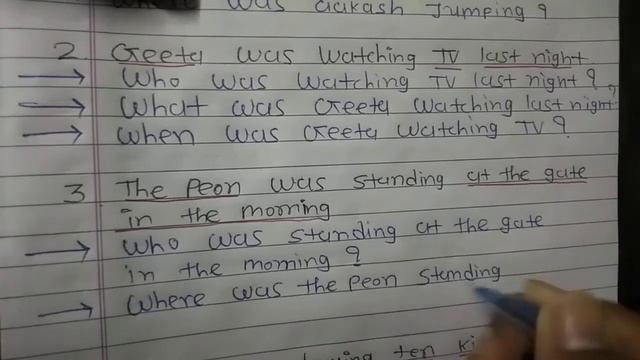 was aakash Jumping ?
2. Geeta was watching TV last night
Who was watching TV last night ?
What was Geeta watching last night ?
When was Geeta watching TV ?
3 The Peon was standing at the gate
in the morning
Who was standing at the gate
in the morning ?
Where was the Peon standing
ten